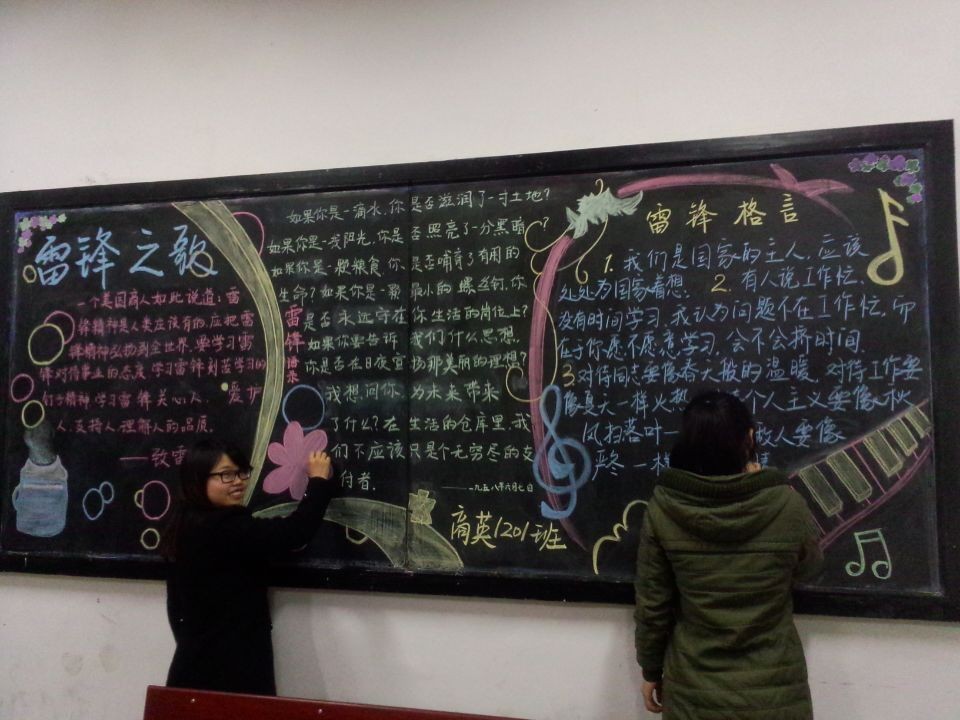 雷锋之歌
一个美国商人如此说道：雷
锋精神是人类应该有的，应把雷
锋精神弘扬到全世界，要学习雷
锋对待事业的态度 学习雷锋刻苦学习的
钉子精神 学习雷锋关心人、爱护
人、支持人理解人的品质。
——致雷
雷锋语录
如果你是一滴水，你是否滋润了一寸土地？
如果你是一线阳光，你是否照亮了一分黑暗？
如果你是一颗粮食，你是否哺育了有用的
生命？如果你是一颗最小的螺丝钉，你
是否永远守在你生活的岗位上？
如果你要告诉我们什么思想，
你是否在日夜宣扬那美丽的理想？
我想问你，为未来带来
了什么？在生活的仓库里，我
们不应该只是个无穷尽的支
付者．
——一九五八年六月七日
商英1201班
雷锋格言
1．我们是国家的主人，应该
处处为国家着想． 2．有人说工作忙、
没有时间学习，我认为问题不在工作忙，而
在于你愿不愿意学习，会不会挤时间．
3．对待同志要像春天般的温暖，对待工作要
像夏天一样火热 个人主义要像秋
风扫落叶一 敌人要像
严冬一样